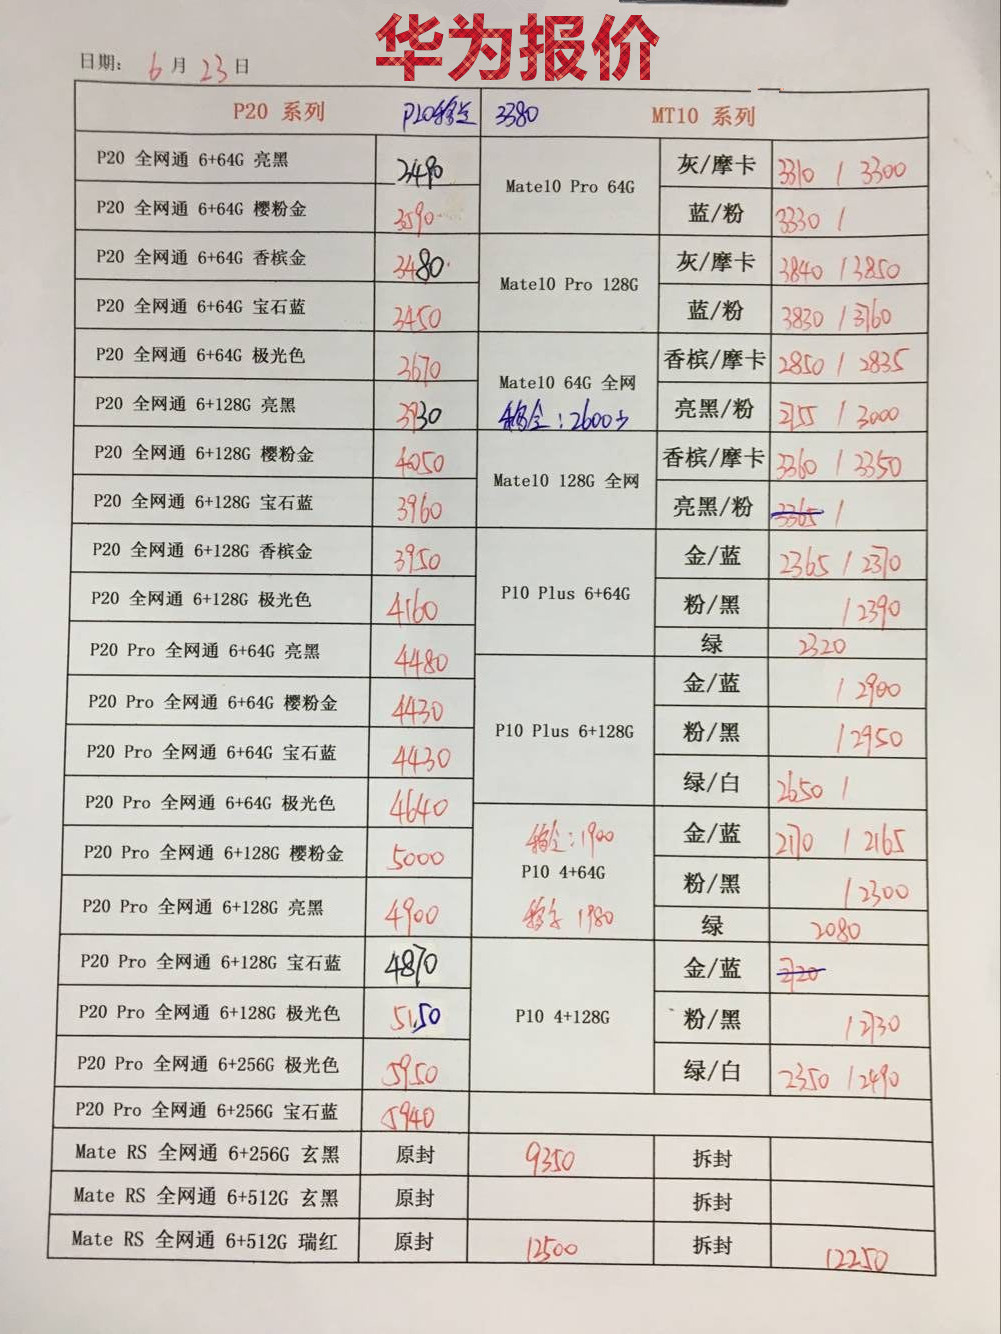 华为报价
日期: 6月23日
P20 系列 P20 3380 MT10 系列
P20 全网通 6+64G 亮黑 3490
P20 全网通 6+64G 樱粉金 3590
P20 全网通 6+64G 香槟金 3480
P20 全网通 6+64G 宝石蓝 3450
P20 全网通 6+64G 极光色 3670
P20 全网通 6+128G 亮黑 3930
P20 全网通 6+128G 樱粉金 4050
P20 全网通 6+128G 宝石蓝 3960
P20 全网通 6+128G 香槟金 3950
P20 全网通 6+128G 极光色 4160
P20 Pro 全网通 6+64G 亮黑 4480
P20 Pro 全网通 6+64G 樱粉金 4430
P20 Pro 全网通 6+64G 宝石蓝 4430
P20 Pro 全网通 6+64G 极光色 4640
P20 Pro 全网通 6+128G 樱粉金 5000
P20 Pro 全网通 6+128G 亮黑 4900
P20 Pro 全网通 6+128G 宝石蓝 4870
P20 Pro 全网通 6+128G 极光色 5150
P20 Pro 全网通 6+256G 极光色 5950
P20 Pro 全网通 6+256G 宝石蓝 5940
Mate10 Pro 64G
灰/摩卡 3310 / 3300
蓝/粉 3330 /
Mate10 Pro 128G
灰/摩卡 3840 / 3850
蓝/粉 3830 / 3760
Mate10 64G 全网
:2600
香槟/摩卡 2850 / 2835
亮黑/粉 2755 / 3000
Mate10 128G 全网
香槟/摩卡 3360 / 3350
亮黑/粉 3365 /
P10 Plus 6+64G
金/蓝 2365 / 2370
粉/黑 / 2390
绿 2320
P10 Plus 6+128G
金/蓝 / 2900
粉/黑 / 2950
绿/白 2650 /
:1900
P10 4+64G
1980
金/蓝 2170 / 2165
粉/黑 / 2300
绿 2080
P10 4+128G
金/蓝 2720
粉/黑 / 2730
绿/白 2350 / 2490
Mate RS 全网通 6+256G 玄黑 原封 9350 拆封
Mate RS 全网通 6+512G 玄黑 原封 拆封
Mate RS 全网通 6+512G 瑞红 原封 12500 拆封 12250